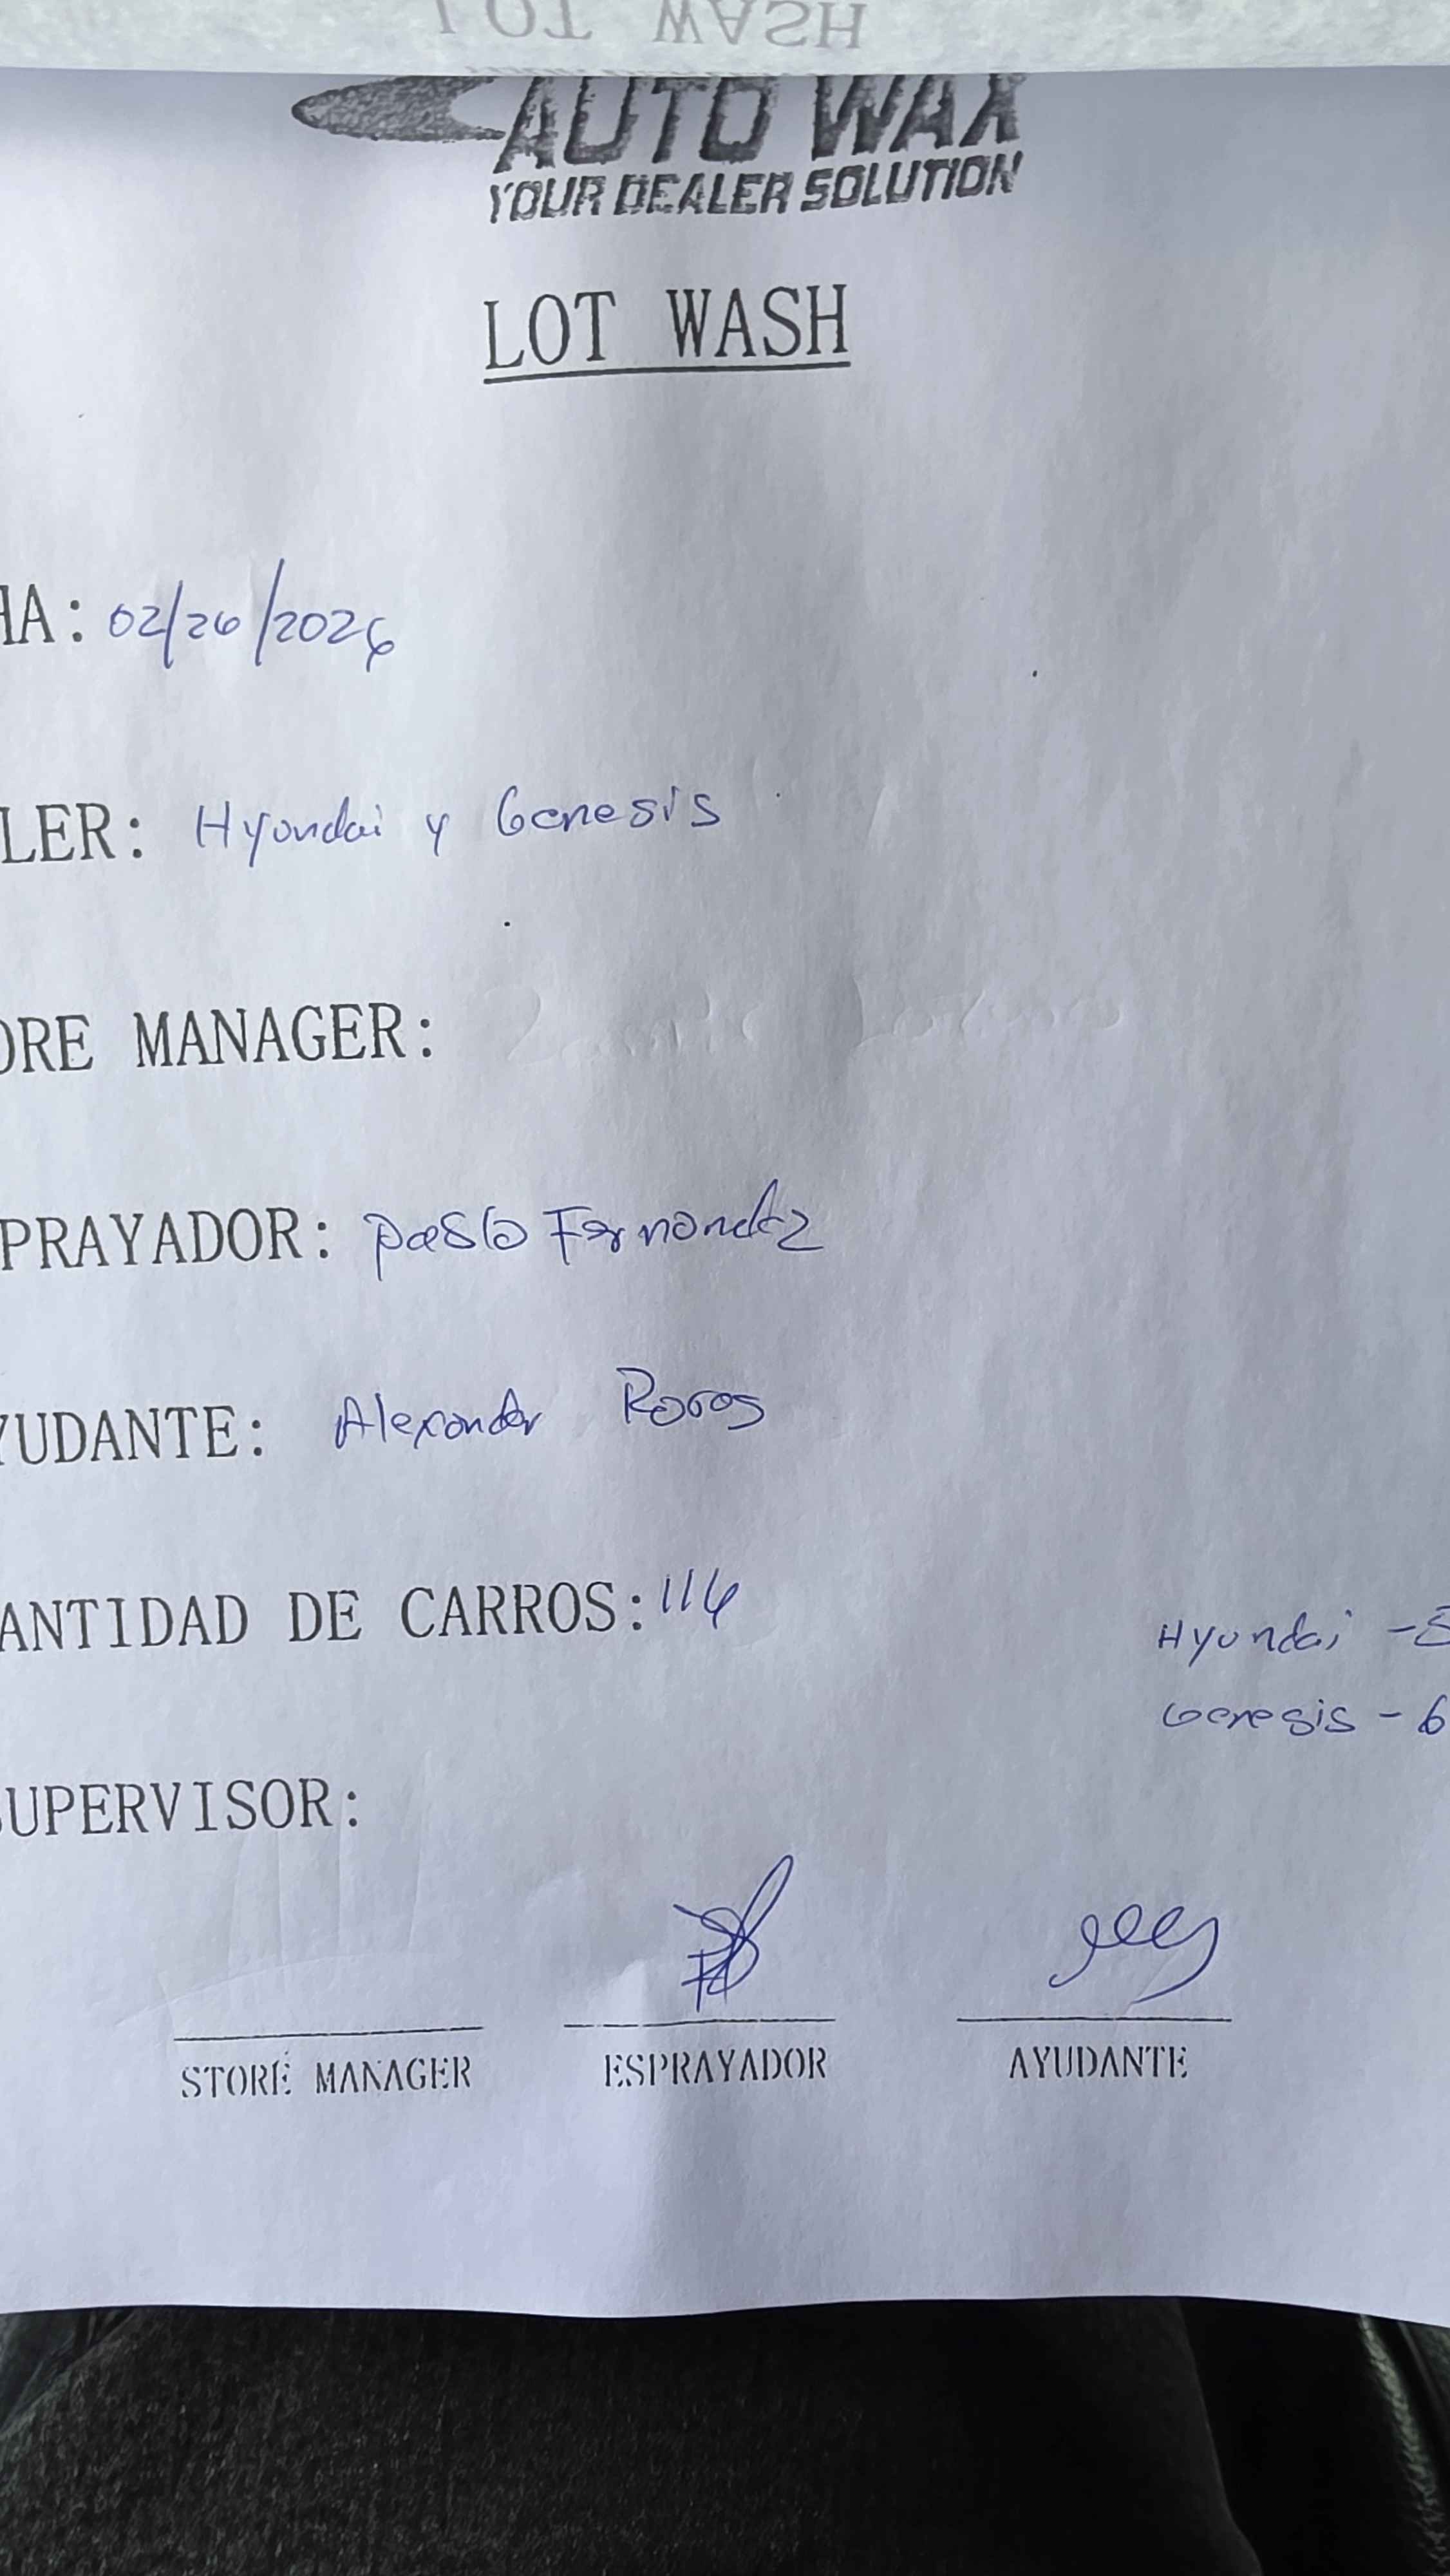 LOT WASH
AUTO WAX
YOUR DEALER SOLUTION
LOT WASH
HA: 02/26/2026
LER: Hyundai y Genesis
ORE MANAGER:
PRAYADOR: Pablo Fernandez
YUDANTE: Alexander
ANTIDAD DE CARROS: 116
Hyundai -5
Genesis - 6
SUPERVISOR:
STORE MANAGER ESPRAYADOR AYUDANTE